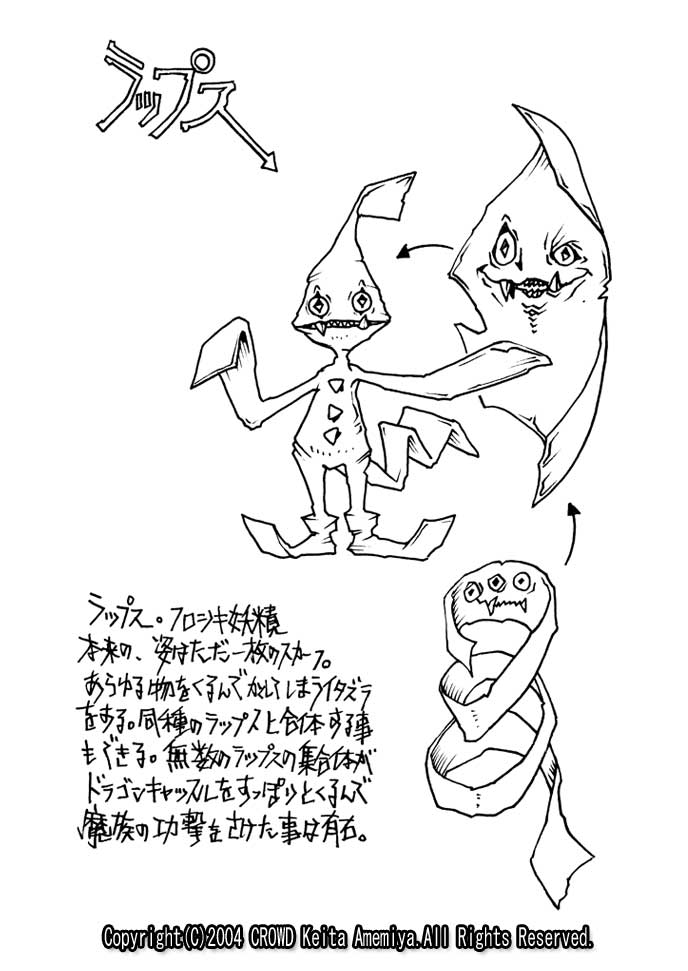 ラップス
ラップス。フロシキ妖精
本来の、姿はただ一枚のスカーフ。
あらゆる物をくるんでかくしてしまうイタズラ
をする。同種のラップスと合体する事
もできる。無数のラップスの集合体が
ドラゴンキャッスルをすっぽりとくるんで
魔族の功撃をさけた事は有名。
Copyright(C)2004 CROWD Keita Amemiya.All Rights Reserved.